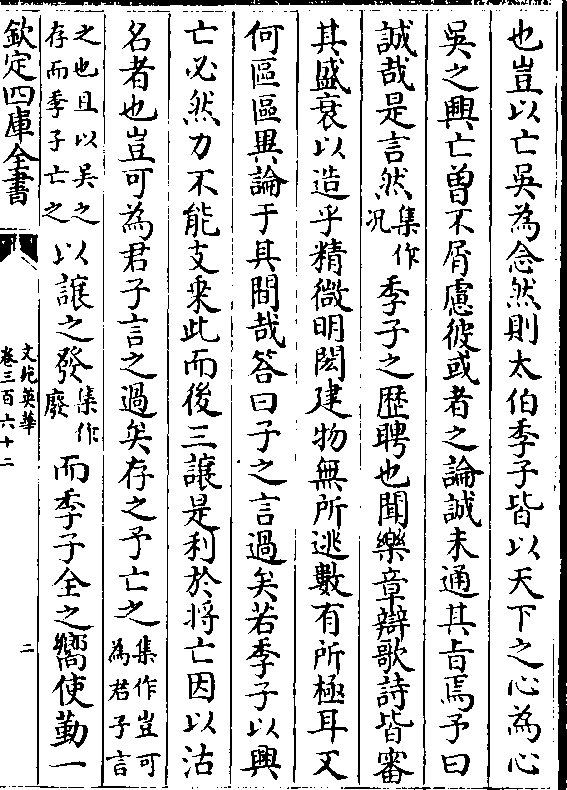 也豈以亡吳為念然則太伯季子皆以天下之心為心
吳之興亡曽不屑慮彼或者之論誠未通其㫖焉予曰
誠哉是言然集作
况季子之歴聘也聞樂章辯歌詩皆審
其盛衰以造乎精微明閎建物無所逃數有所極耳又
何區區異論于其間哉答曰子之言過矣若季子以興
亡必然力不能支乗此而後三讓是利於将亡因以沽
名者也豈可為君子言之過矣存之予亡之集作豈可
為君子言
之也且以吳之
存而季子亡之以讓之發集作
廢而季子全之嚮使勤一
欽定四庫全書
文苑英華
卷三百六十二
二